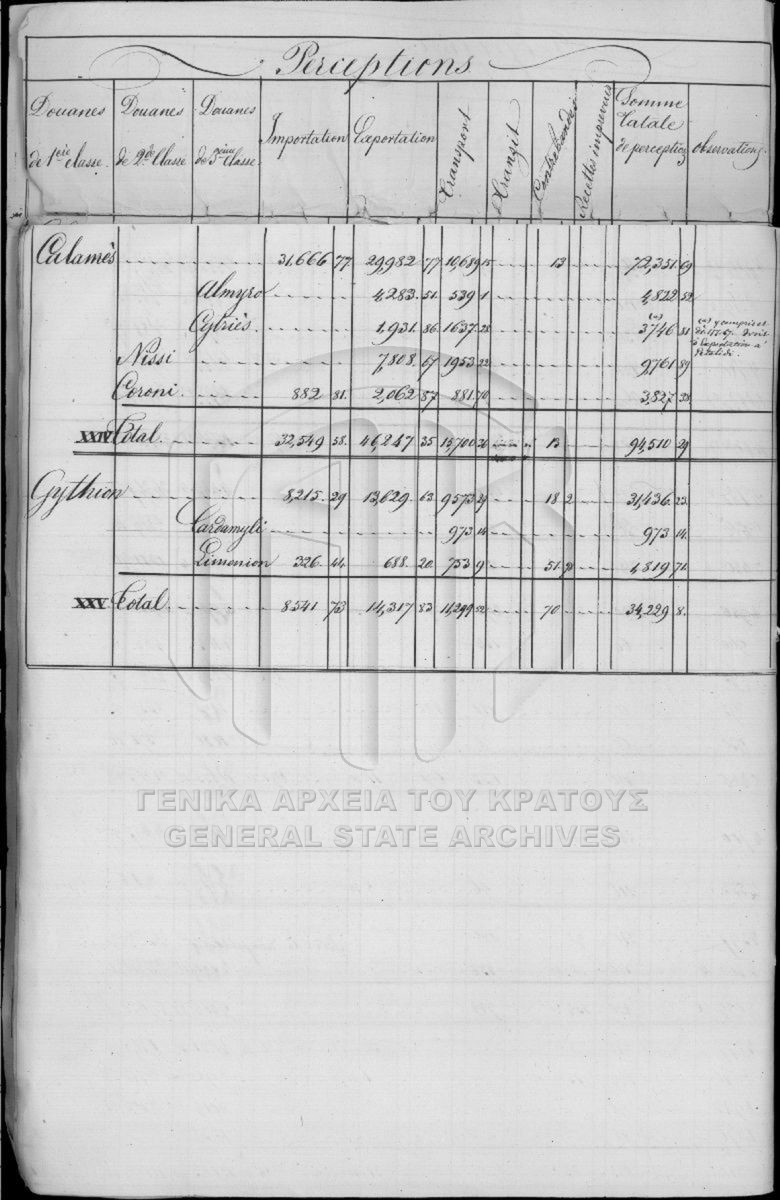 Perceptions
Douanes de 1ère classe. Douanes de 2de Classe Douanes de 3ème Classe. Importation Exportation Transport Transit Contrebandes Recettes imprévues Somme Totale de perception observations
Calamès 31.666 77 29,982 77 10,689 15 13 72,351 69
Almyro 4,283. 51. 539 1 4,822 52
Cytriés. 1,931. 86. 1637 28 (a) 3746 81 (a) y compris
Nissi 7,808. 67 1953 22 9,761 89
Coroni. 882 81. 2,062 87 881 70 3,827 38
XXIV Total. 32,549 58. 46,247 35 15,700 26 13 94,510 29
Gythion 8,215. 29 13,629 63. 9573 29 18 2 31,436. 23.
Cardamyli 973 14 973 14.
Limenion 326. 44. 688. 20. 753 9 51. 1,819 71.
XXV Total. 8541 73 14,317 83 11,299 52 70 34,229 8.
ΓΕΝΙΚΑ ΑΡΧΕΙΑ ΤΟΥ ΚΡΑΤΟΥΣ
GENERAL STATE ARCHIVES